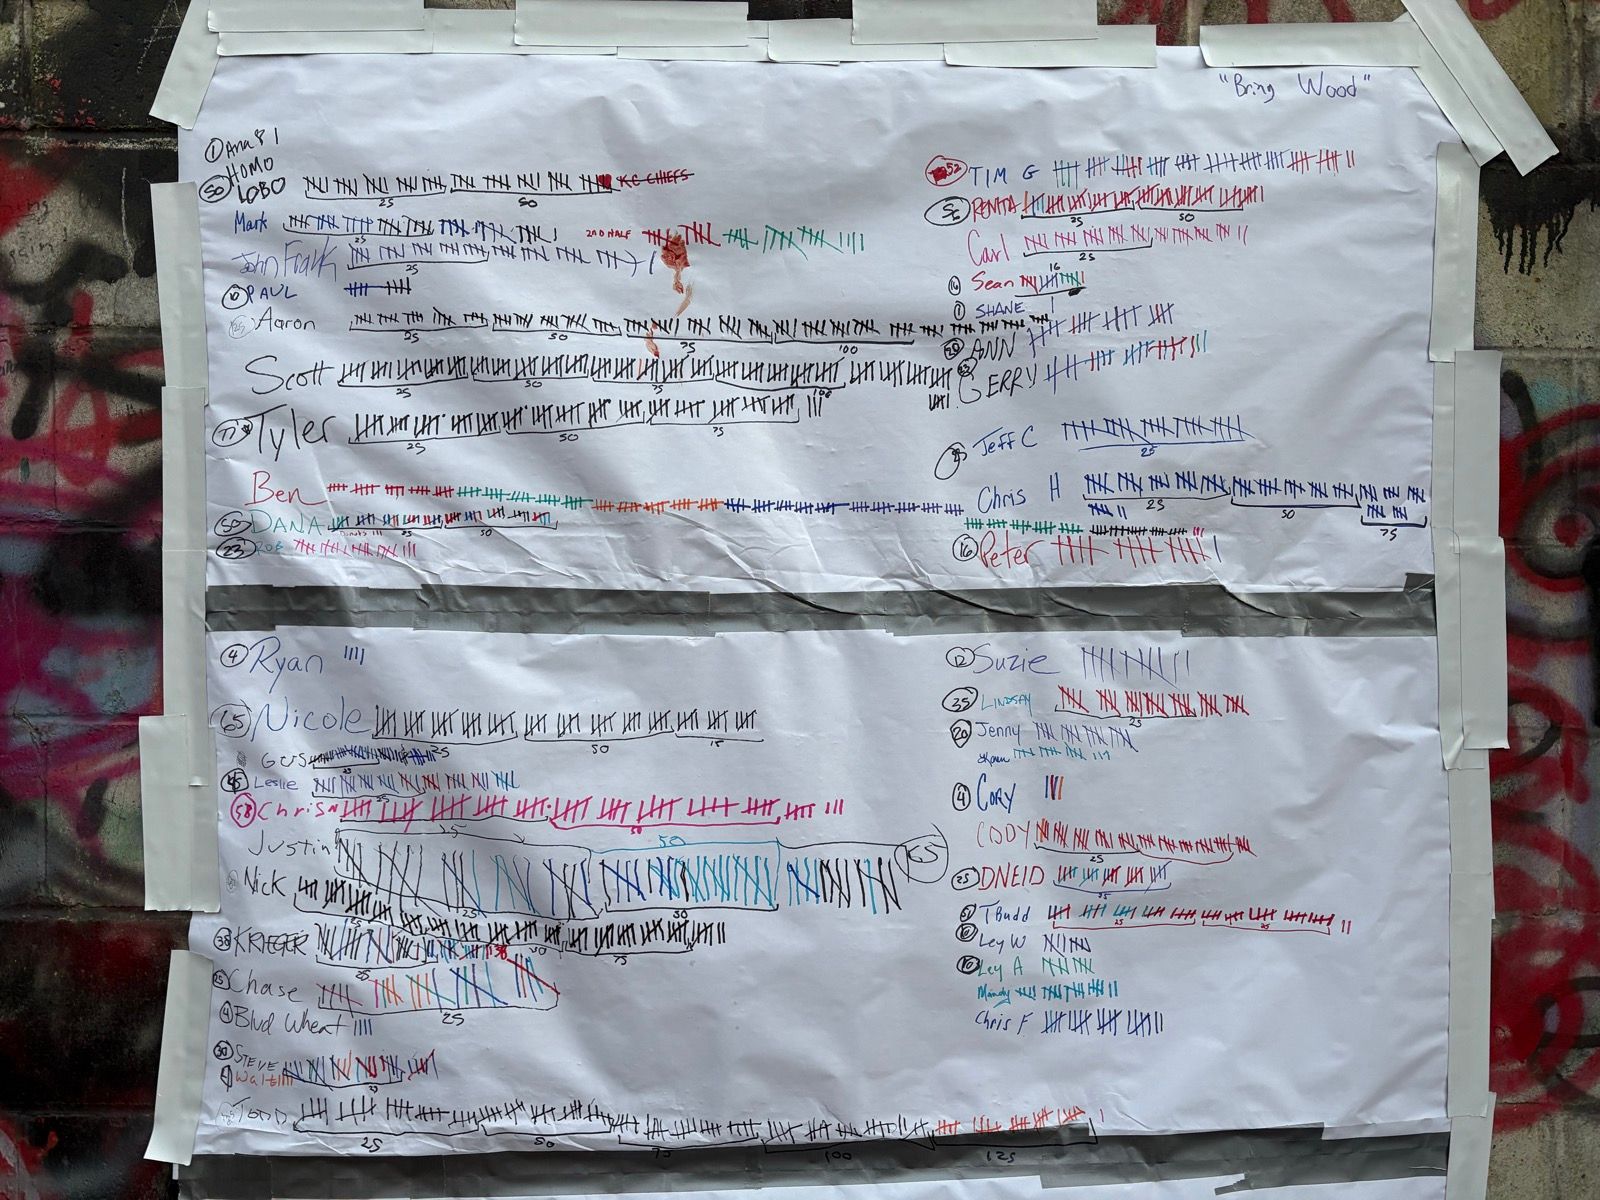 "Bring Wood"
① Ana 8 1
HOMO
50 LOBO KC CHIEFS
25 50
Mark 2ND HALF
25
John Frank
25
10 PAUL
Aaron
25 50 75 100
Scott
25 50 75 100
77 Tyler
25 50 75
Ben
50 DANA
Donuts 25 50
23 ROB
52 TIM G
RENITA
25 50
Carl
25
16
16 Sean
1 SHANE 1
20 ANN
GERRY
Jeff C
25
Chris H
25 50 75
16 Peter
4 Ryan
65 Nicole
25 50 15
Gus 25
25
45 Leslie
25
58 Chris N
50
Justin
25 50 65
25 50
Nick
25 50 75
38 KRIEGER 38
25
25 Chase
25
4 Blud Wheat
30 STEVE
4 Walt
25
TODD
25 50 75 100 125
12 Suzie
35 LINDSAY
25
20 Jenny
4 CORY
CODY
25
25 DNEID
25
51 T Budd
25 25
10 Ley W
10 Ley A
Mandy
Chris F